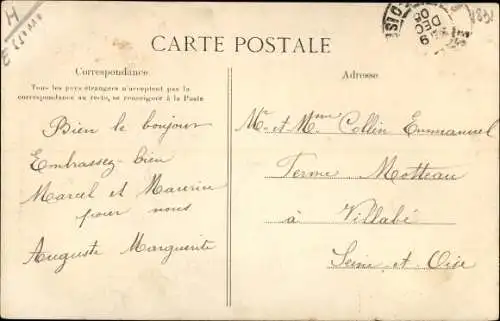 H
Essonne
CARTE POSTALE
Correspondance
Tous les pays étrangers n'acceptent pas la
correspondance au recto, se renseigner à la Poste
Bien le bonjour
Embrassez-bien
Marcel et Maurice
pour nous
Auguste Marguerite
9
DEC
05
Adresse
Mr et Mme Collin Emmanuel
Ferme Motteau
à Villabé
Seine-et-Oise